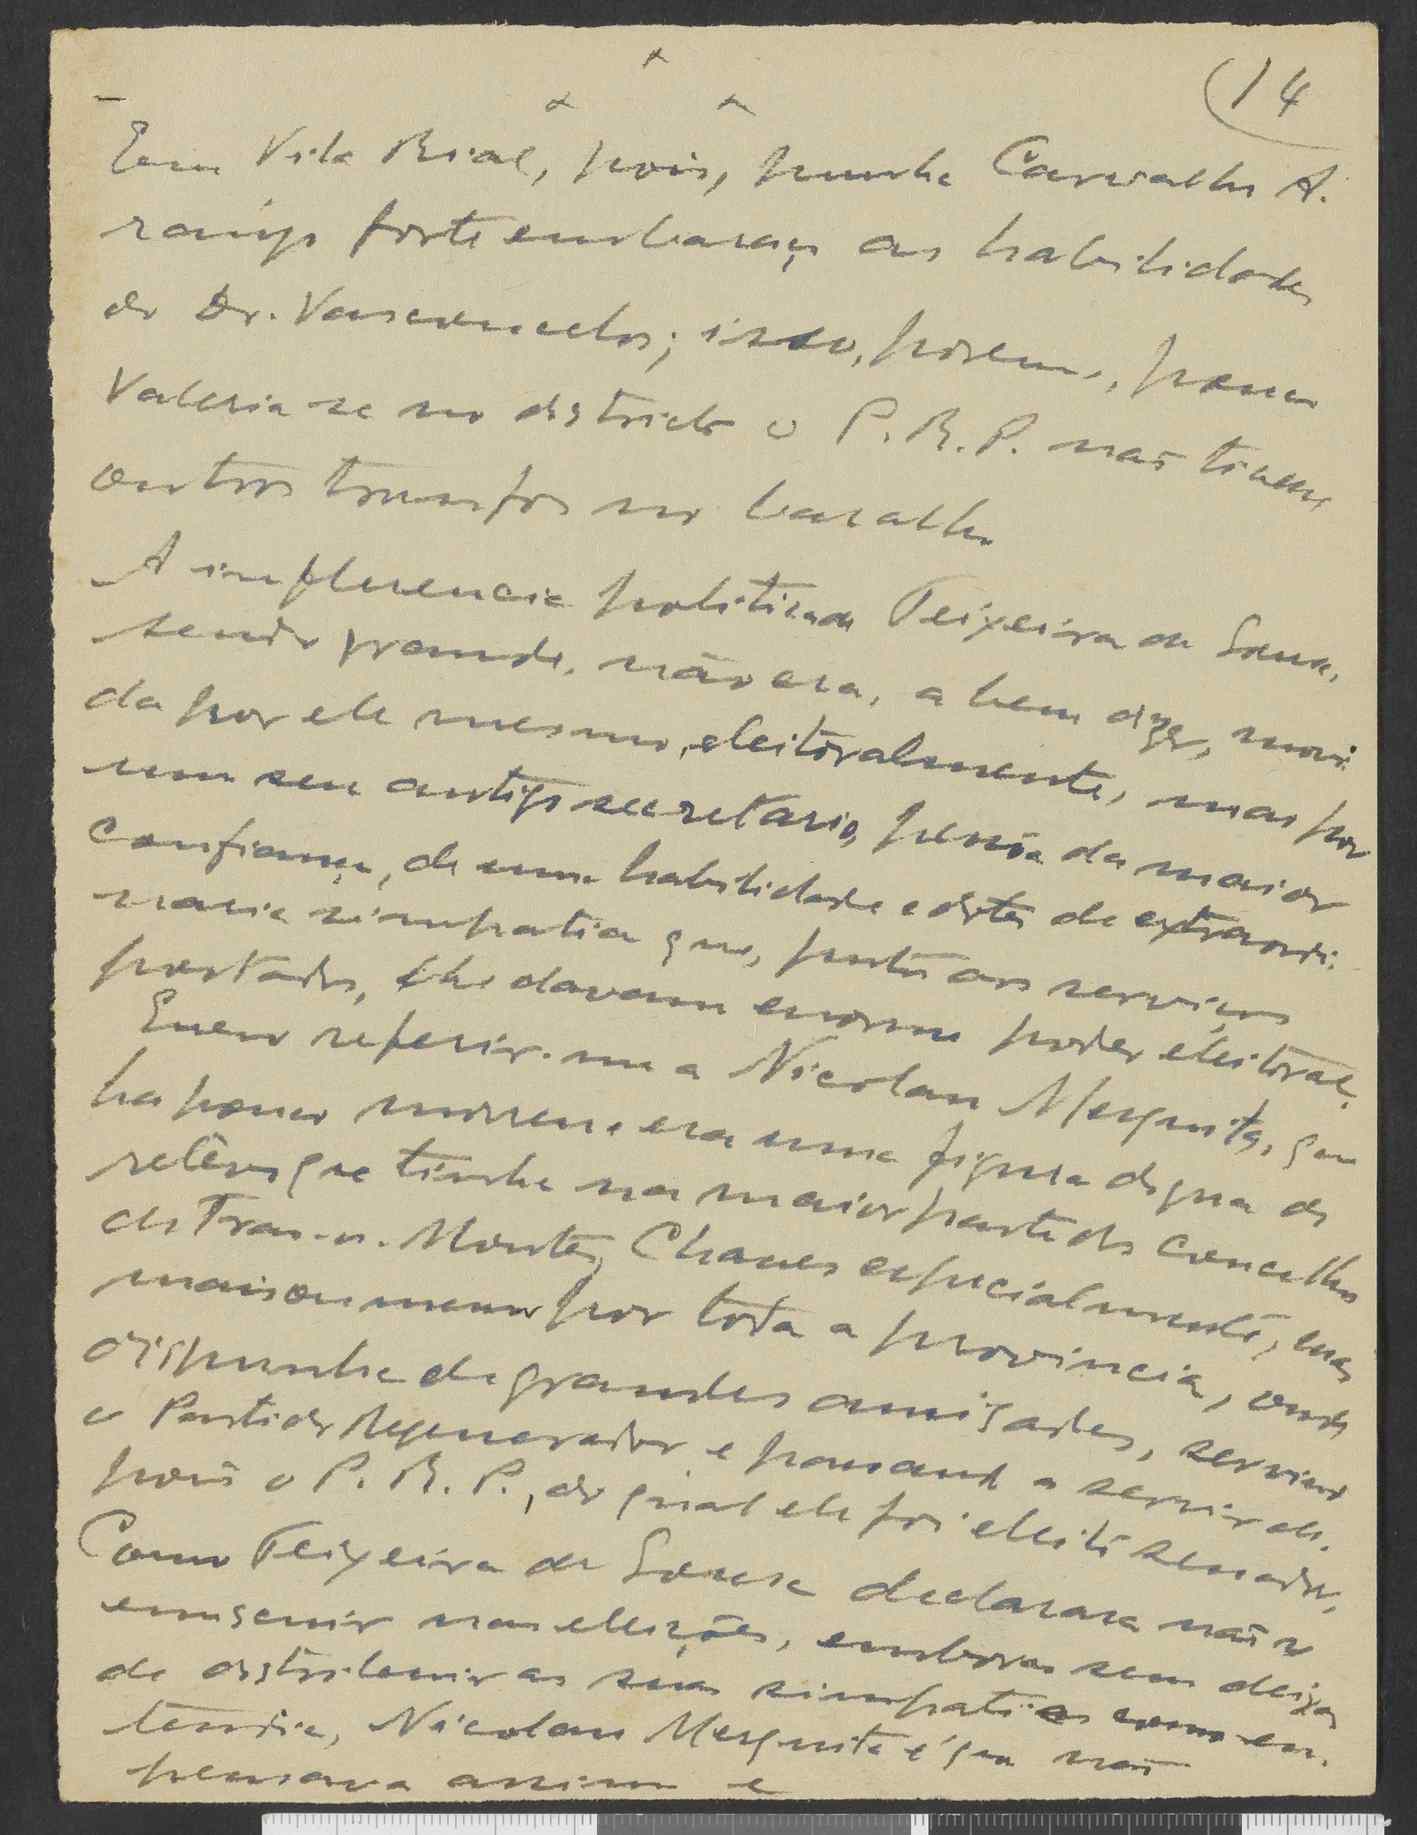 14
Em Vila Rial, pois, punha Carvalho A.
raujo forte embaraço ás habilidades
do Dr. Vasconcelos; isso, porem, pouco
valeria se no districto o P. R. P. não tivesse
outros trunfos no baralho
A influencia politica de Teixeira de Sousa,
sendo grande, não era, a bem dizer, movi-
da por ele mesmo, eleitoralmente, mas por
um seu antigo secretario, pessôa da maior
confiança, de uma habilidade e dotes de extraordi-
naria simpatia que, junto aos serviços
prestados, lhe davam enorme poder eleitoral.
Quero referir-me a Nicolau Mesquita, que
ha pouco morreu e era uma figura digna de
relêvo que tinha na maior parte dos concelhos
de Tras-os-Montes, Chaves especialmente, mas
mais ou menos por toda a provincia, onde
dispunha de grandes amisades, servindo
o Partido Regenerador e passando a servir de-
pois o P. R. P., do qual ele foi eleito senador.
Como Teixeira de Sousa declarara não se
imiscuir nas eleições, embora sem deixar
de distribuir as suas simpatias como en-
tendia, Nicolau Mesquita é que não
pensava assim e